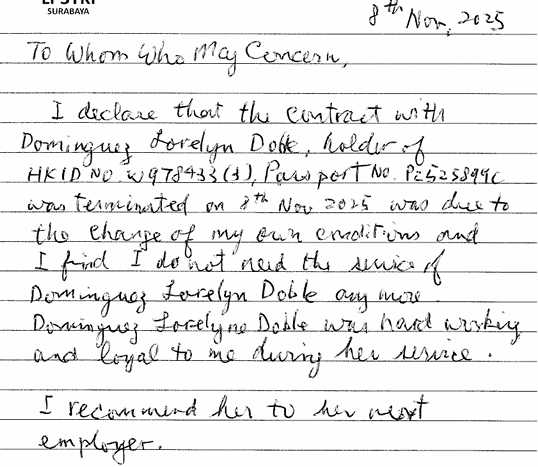 SURABAYA
8th Nov, 2025
To Whom Who May Concern,
I declare that the contract with
Dominguez Lorelyn Doble, holder of
HKID NO. W978433(3), Passport No. P2525899C
was terminated on 8th Nov 2025 was due to
the change of my own conditions and
I find I do not need the service of
Dominguez Lorelyn Doble any more.
Dominguez Lorelyne Doble was hard working
and loyal to me during her service.
I recommend her to her next
employer.